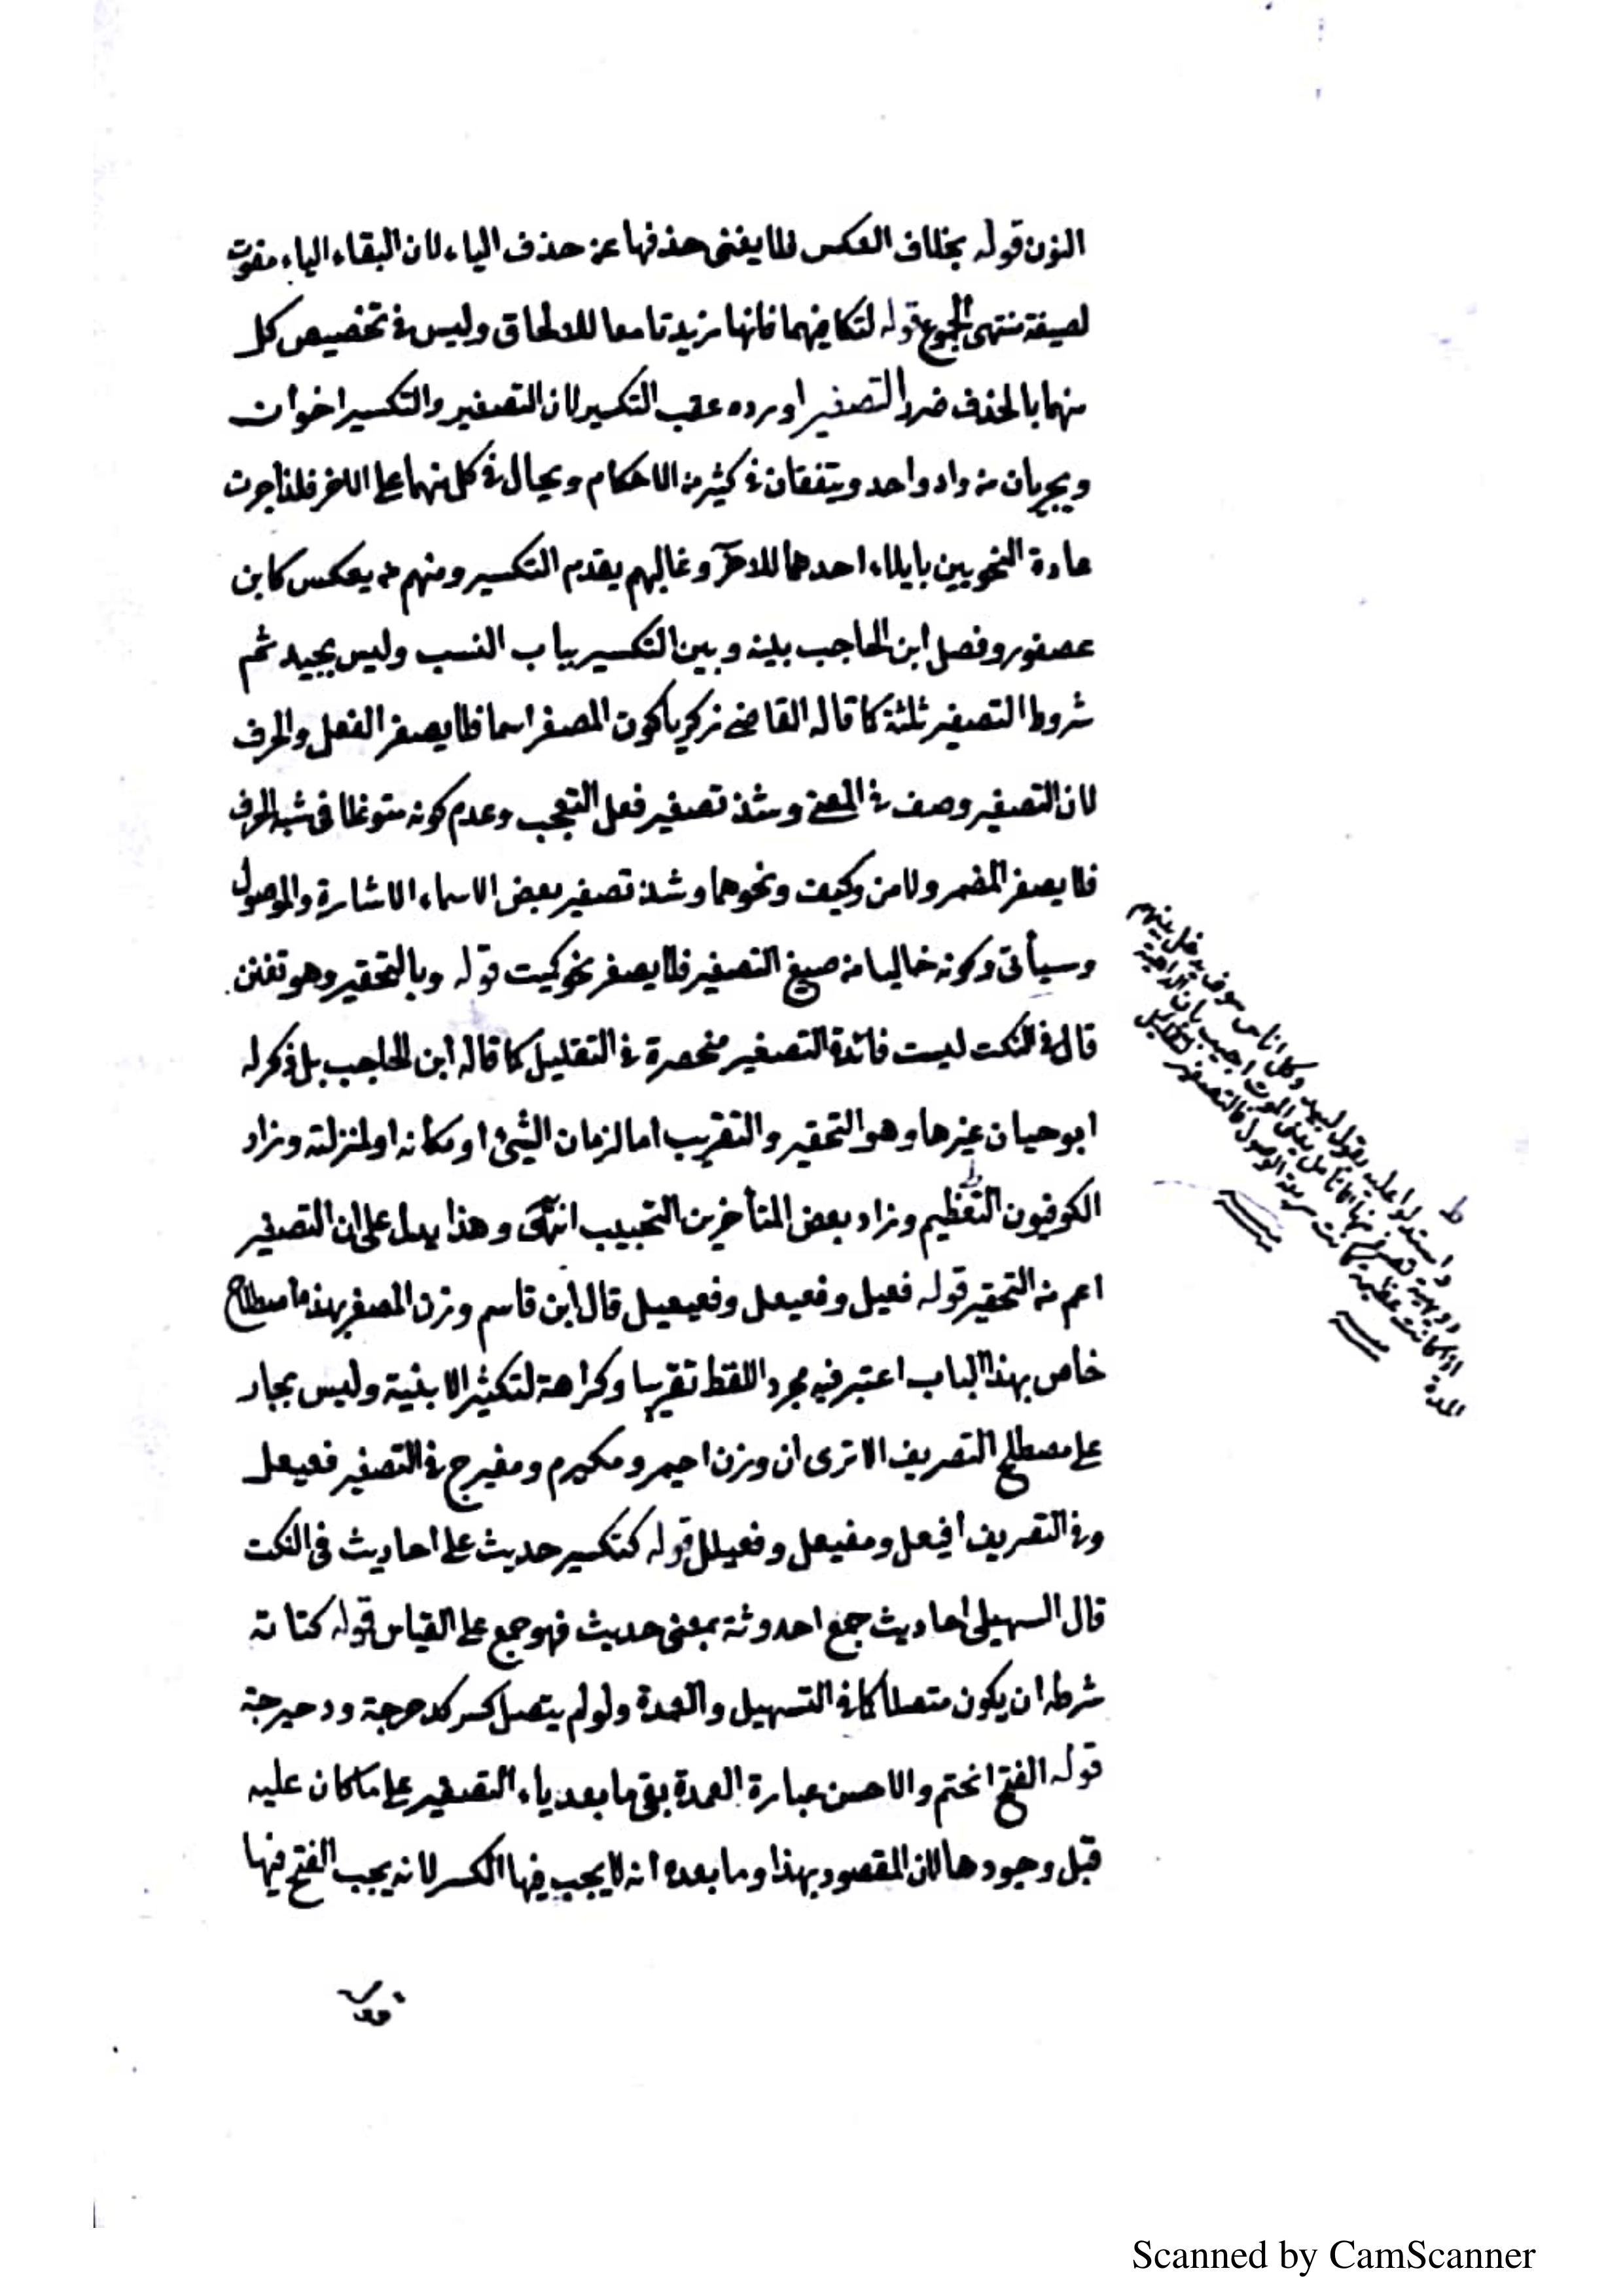 النون قوله بخلاف العكس فلا يغنى حذفها عن حذف الياء لان البقاء الياء مفوت
لصيغة منتهى الجموع قوله لتكافيهما فانها مزيدتا معا للالحاق وليس في تخصيص كل
منهما بالحذف ضرر التصغير اورده عقب التكسير لان التصغير والتكسير اخوان
ويجريان من واد واحد ويتفقان في كثير من الاحكام ويحال في كل منهما على الاخر فلذا جرت
عادة النحويين بايلاء احدهما للاخر وغالبهم يقدم التكسير ومنهم من يعكس كابن
عصفور وفصل ابن الحاجب بينه وبين التكسير بباب النسب وليس بجيد ثم
شروط التصغير ثلثة كما قاله القاضي زكريا كون المصغر اسما فلا يصغر الفعل والحرف
لان التصغير وصف في المعنى وشذ تصغير فعل التعجب وعدم كونه متوغلا في شبه الحرف
فلا يصغر المضمر ولا من وكيف ونحوهما وشذ تصغير بعض الاسماء الاشارة والموصول
وسيأتى وكونه خاليا من صيغ التصغير فلا يصغر نحو كميت قوله وبالتحقير وهو تفنن
قال في النكت ليست فائدة التصغير منحصرة في التقليل كما قاله ابن الحاجب بل ذكر له
ابو حيان غيرها وهو التحقير والتقريب اما لزمان الشيئ او مكانه او لمنزلته وزاد
الكوفيون التعظيم وزاد بعض المتأخرين التحبيب انتهى وهذا يدل على ان التصغير
اعم من التحقير قوله فعيل وفعيعل وفعيعيل قال ابن قاسم وزن المصغر بهذه اصطلاح
خاص بهذا الباب اعتبر فيه مجرد اللفظ تقريبا وكراهة لتكثير الابنية وليس بجار
على مصطلح التصريف الا ترى ان وزن احيمر ومكيرم ومفيرج في التصغير فعيعل
وفي التصريف افيعل ومفيعل وفعيلل قوله كتكسير حديث على احاديث فى النكت
قال السهيلى احاديث جمع احدوثة بمعنى حديث فهو جمع على القياس قوله كتا ته
شرطه ان يكون متصلا كما في التسهيل والعمدة ولو لم يتصل كسر كدحرجة ودحيرجة
قوله الفتح انحتم والاحسن عبارة العمدة بقى ما بعد ياء التصغير على ما كان عليه
قبل وجودها لان المقصود بهذا وما بعده انه لا يجب فيها الكسر لا انه يجب الفتح فيها
ط
واستدلوا عليه بقول لبيد وكل اناس سوف يدخل بينهم
دويهية تصفر منها الانامل يعنى الموت اجيب بان الداهية
اذا كانت عظيمة كانت سريعة الوصول فالتصغير لتقليل
المدة
Scanned by CamScanner